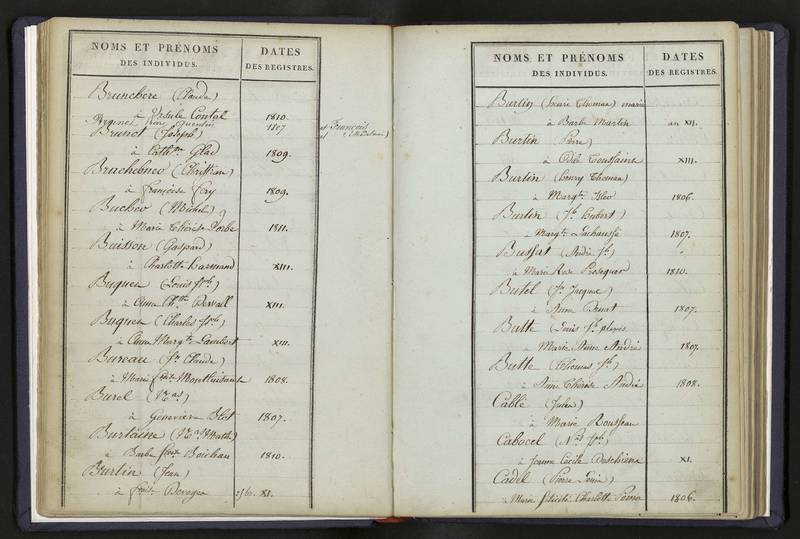 NOMS ET PRÉNOMS
DES INDIVIDUS.
DATES
DES REGISTRES.
Brunchere (Claude)
à Ursule Contal 1810.
Quentin 1807
Brunot (Joseph)
à Cathne Glad 1809.
Bruchebneo (Chrittian)
à françoise fery 1809.
Bucheo (Michel)
à Marie Thérèse Dorbe 1811.
Buisson (Gaspard)
à Charlotte harmand XIII.
Buquen (Louis jph)
à Anna XIII.
Buquen (Charles jph)
à Anna Margte Lambert XIII.
Bureau (jn Claude)
à Marie Monthuisant 1808.
Burel (Nas)
à Genevieve Blot 1807.
Burtaine (Nas Math)
à Barbe Boileau 1810.
Burtin (Jean)
à XI.
François
NOMS ET PRÉNOMS
DES INDIVIDUS.
DATES
DES REGISTRES.
Burtin (henrie Thomas) marié
à Barbe Martin an XII.
Burtin (Pierre)
à Odile Toussaint XIII.
Burtin (henry Thomas)
à Margte 1806.
Burtin (Jh hubert)
à Margte Lachausse 1807.
Bussat (André jh)
à Marie Rose 1810.
Butel (jn Jacque)
à Anne 1807.
Butte (Louis jh
à Marie Anne André 1807.
Butte (Thomas jh)
à Anne Thérèse André 1808.
Cablé (Julien)
à Marie Rousseau
Cabocel (Nas jph)
à Jeanne Cecile Deschiens XI.
Cadel (Pierre Louis)
à Marie félicité Charlotte 1806.